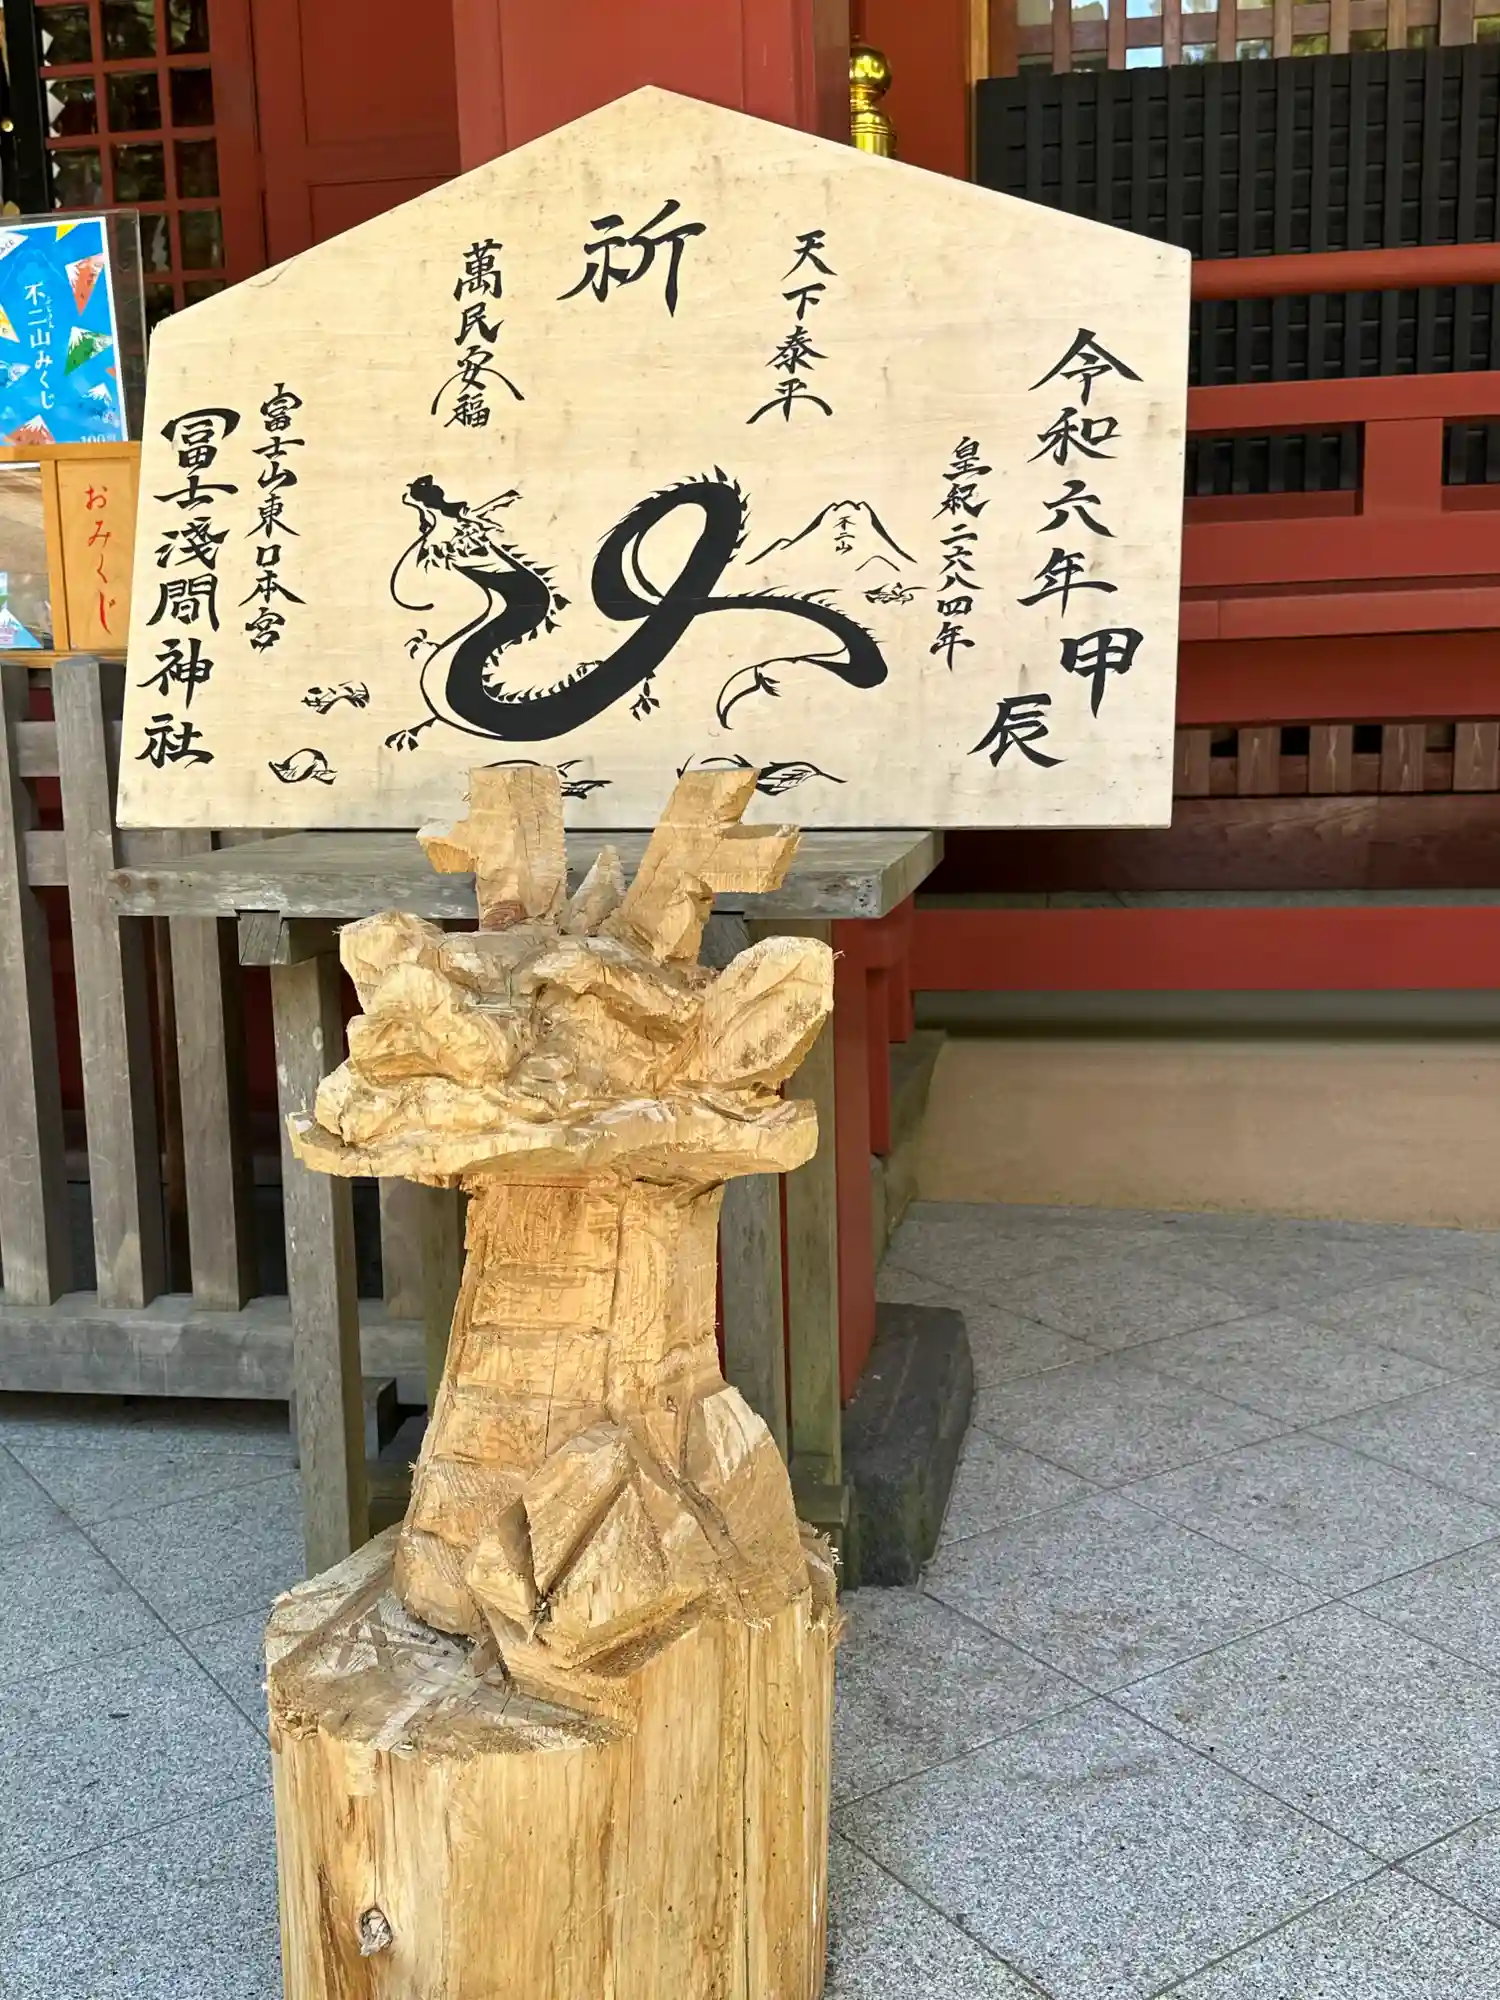 令和六年甲辰
皇紀二六八四年
天下泰平
祈
萬民安福
富士山東口本宮
冨士淺間神社
不二山
不二山みくじ
100円
おみくじ